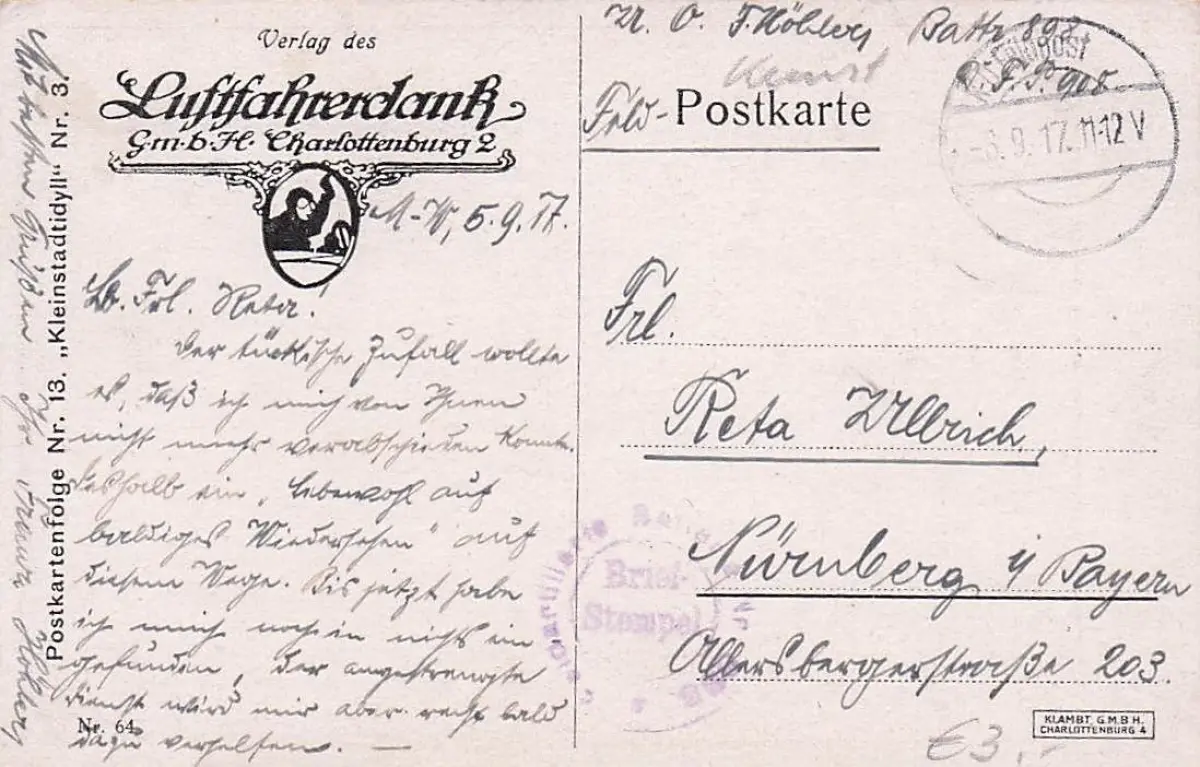 Verlag des
Luftfahrerdank
G.m.b.H. Charlottenburg 2
M-W, 5.9.17.
Lb. Frl. Reta!
Der tückische Zufall wollte
es, daß ich mich von Ihnen
nicht mehr verabschieden konnte.
Deshalb ein „Lebewohl auf
baldiges Wiedersehen" auf
diesem Wege. Bis jetzt habe
ich mich noch in nichts ein
gefunden, der angestrengte
Dienst wird mir aber recht bald
dazu verhelfen. —
Mit besten Grüßen Ihr
Postkartenfolge Nr. 13. „Kleinstadtidyll" Nr. 3.
Nr. 64
Battr. 898
Feld-Postkarte
Feldpost
D.F.P. 908.
-6.9.17. 11-12 V
Frl.
Reta Ullrich,
Nürnberg i/Bayern
Allersbergerstraße 203.
Brief-
Stempel
KLAMBT G.M.B.H.
CHARLOTTENBURG 4
€3,-